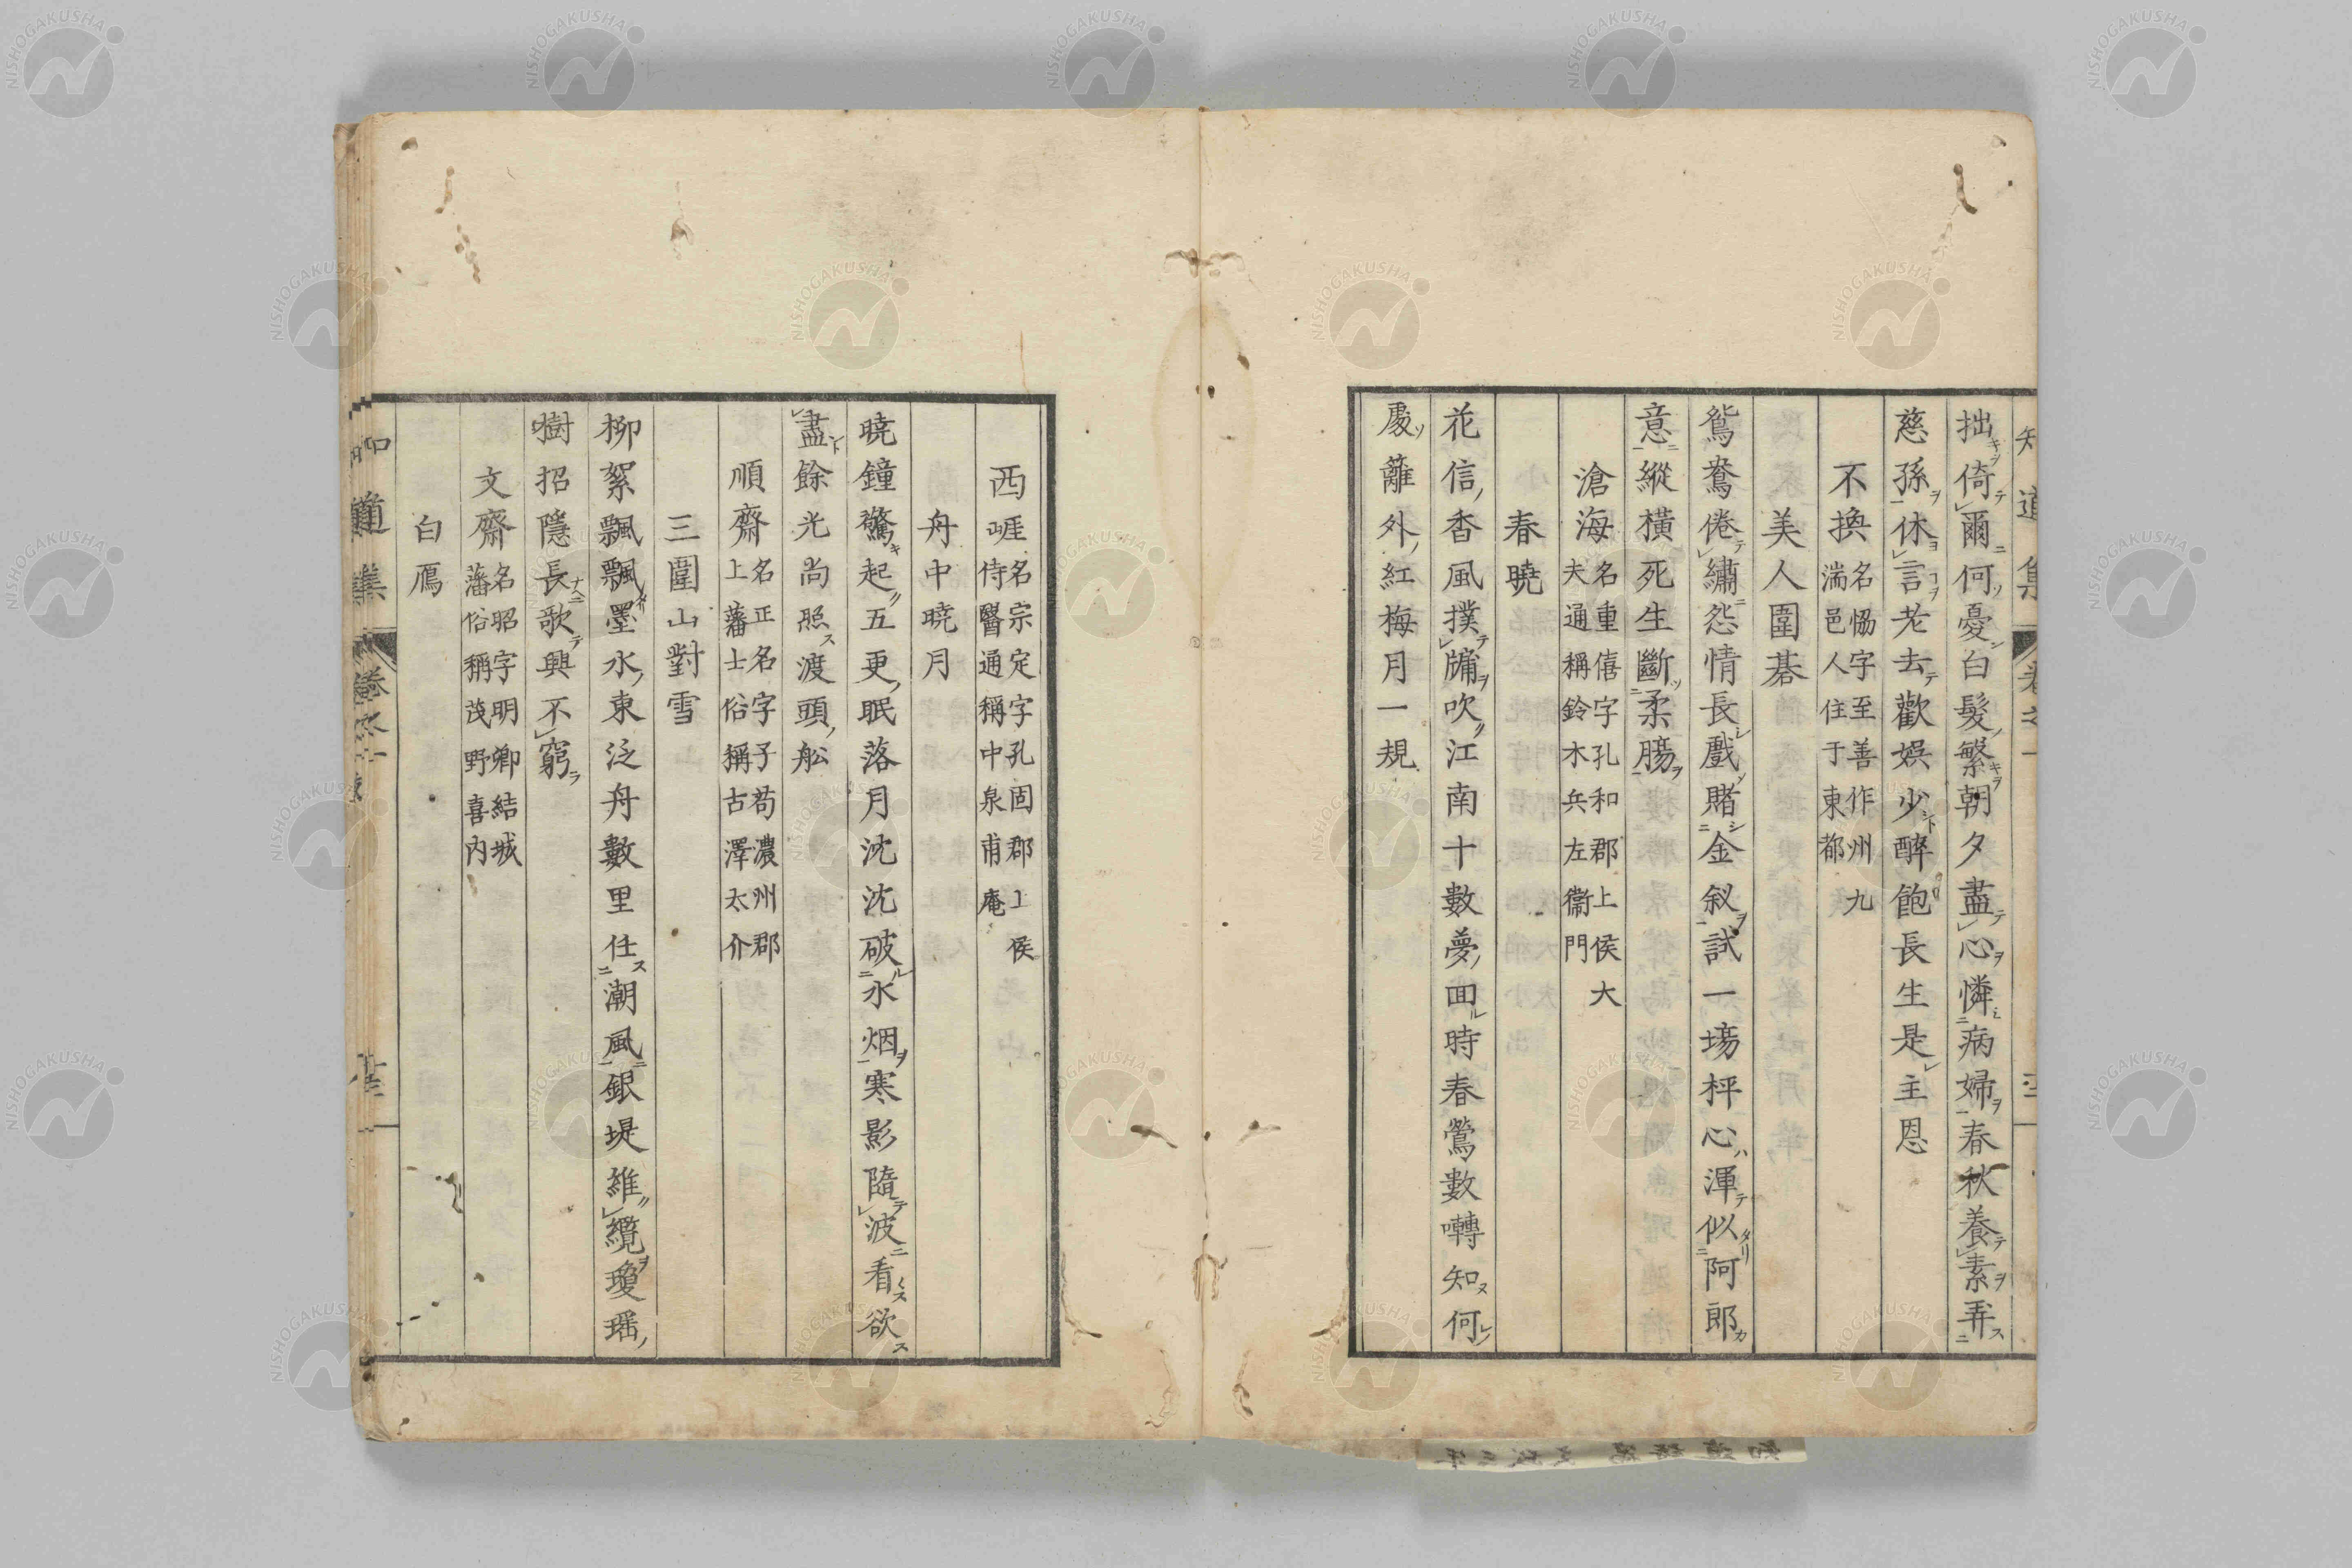 拙倚爾何憂白髮繁朝夕盡心憐病婦春秋養素弄
慈孫休言老去歡娯少醉飽長生是主恩
不換名恊字至善作州九
湍邑人住于東都
美人圍碁
鴛鴦倦繡怨情長戲賭金釵試一塲枰心渾似阿郎
意縱橫死生斷柔膓
滄海名重僖字孔和郡上侯大
夫通稱鈴木兵左衞門
春曉
花信香風撲牗吹江南十數夢回時春鶯數囀知何
處籬外紅梅月一規
西崕名宗定字孔固郡上侯
侍醫通稱中泉甫庵
舟中曉月
曉鐘驚起五更眠落月沈沈破水烟寒影隨波看欲
盡餘光尚照渡頭舩
順齋名正名字子苟濃州郡
上藩士俗稱古澤太介
三圍山對雪
柳絮飄飄墨水東泛舟數里任潮風銀堤維纜瓊瑶
樹招隱長歌興不窮
文齋名昭字明卿結城
藩俗稱茂野喜内
白鴈
道集
NISHOGAKUSHA